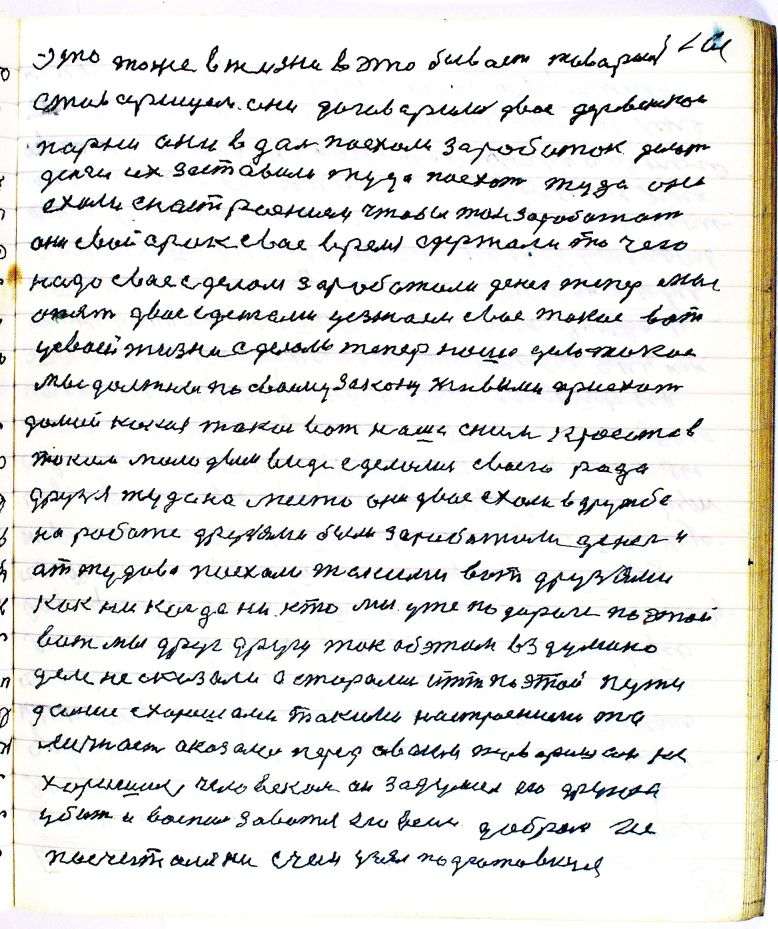 Это тоже в жизни в это бывает товариш
стов арищем. они договарили двое деревенскои
парни они в дал поехали заработок делат
денги их заставили туда поехат туда они
ехали снастроением чтобы там заработат
они свой срок свае время здержали то чего
надо свае сделали заработали денег тепер мы
опят двое сдетами узнаем свае такое вот
усвоей жизни сделали тепер наше дело такое
мы должны по своему закону живыми приехат
домой какая така вот наша сними красота в
таком молодым виде сделали своего рада
друзя туда на место они двое ехали в дружбе
на работе друзями были заработали денег и
аттудова поехали такими вот друзями
как ни когда ни кто мы уже по дороге по этой
вот мы друг другу так обэтом вздумано
деле не сказали а старали итти по этой пути
далше схорошами такими настроениями та
личнаст оказалс перед своим товаришом не
хорошим, человеком он задумал его дружка
убит и воспользоватся его всем добром не
посчиталс ни счем узял подготовился